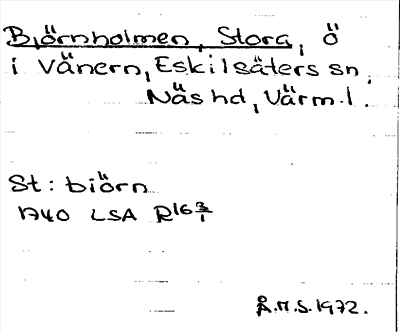 Björnholmen, Stora, ö
i Vänern, Eskilsäters sn,
Näs hd, Värml.
St: biörn
1740 LSA R16 3/1
R.M.S. 1972.